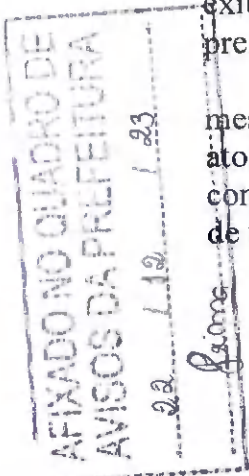 AFIXADO NO QUADRO DE
AVISOS DA PREFEITURA
22 / 12 / 23
exib
pre
mes
ato
con
de